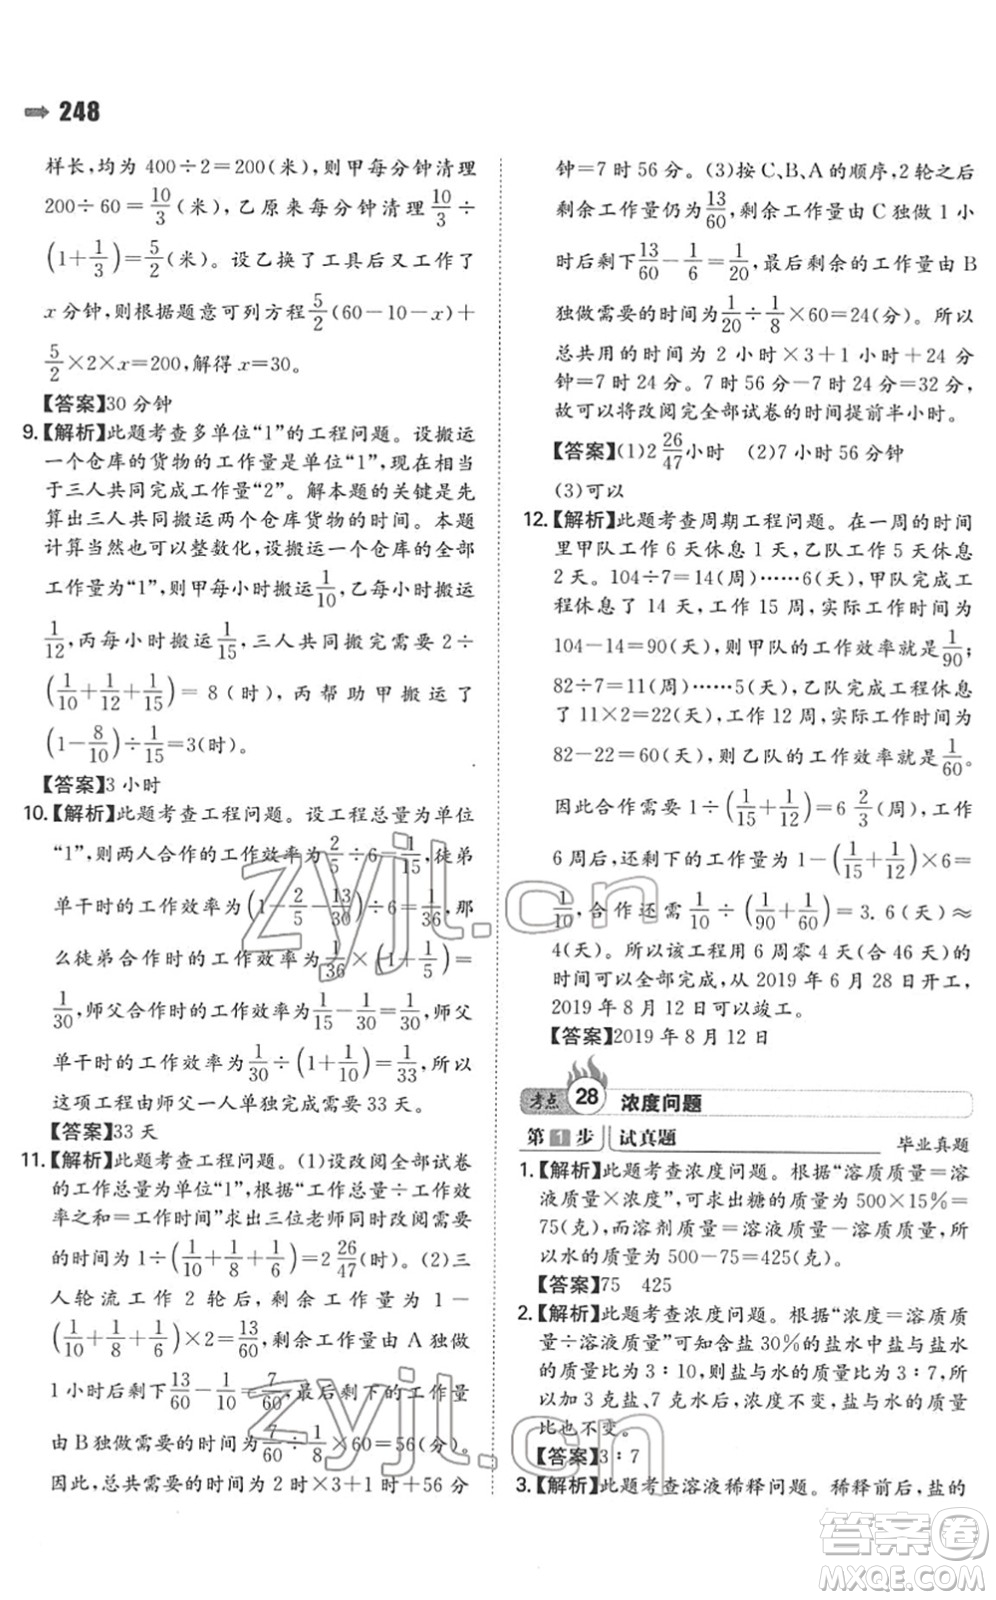 248
样长,均为 400÷2=200(米),则甲每分钟清理
200÷60=10/3(米),乙原来每分钟清理 10/3÷
(1+1/3)=5/2(米)。设乙换了工具后又工作了
x 分钟,则根据题意可列方程 5/2(60-10-x)+
5/2×2×x=200,解得 x=30。
【答案】30 分钟
9.【解析】此题考查多单位“1”的工程问题。设搬运
一个仓库的货物的工作量是单位“1”,现在相当
于三人共同完成工作量“2”。解本题的关键是先
算出三人共同搬运两个仓库货物的时间。本题
计算当然也可以整数化,设搬运一个仓库的全部
工作量为“1”,则甲每小时搬运 1/10,乙每小时搬运
1/12,丙每小时搬运 1/15,三人共同搬完需要 2÷
(1/10+1/12+1/15)=8(时),丙帮助甲搬运了
(1-8/10)÷1/15=3(时)。
【答案】3 小时
10.【解析】此题考查工程问题。设工程总量为单位
“1”,则两人合作的工作效率为 2/5÷6=1/15,徒弟
单干时的工作效率为(1-2/5-13/30)÷6=1/36,那
么徒弟合作时的工作效率为 1/36×(1+1/5)=
1/30,师父合作时的工作效率为 1/15-1/30=1/30,师父
单干时的工作效率为 1/30÷(1+1/10)=1/33,所以
这项工程由师父一人单独完成需要 33 天。
【答案】33 天
11.【解析】此题考查工程问题。(1)设改阅全部试卷
的工作总量为单位“1”,根据“工作总量÷工作效
率之和=工作时间”求出三位老师同时改阅需要
的时间为 1÷(1/10+1/8+1/6)=2 26/47(时)。(2)三
人轮流工作 2 轮后,剩余工作量为 1-
(1/10+1/8+1/6)×2=13/60,剩余工作量由 A 独做
1 小时后剩下 13/60-1/10=7/60,最后剩下的工作量
由 B 独做需要的时间为 7/60÷1/8×60=56(分)。
因此,总共需要的时间为 2×3+1 时+56 分
钟=7 时 56 分。(3)按 C、B、A 的顺序,2 轮之后
剩余工作量仍为 13/60,剩余工作量由 C 独做 1 小
时后剩下 13/60-1/6=1/20,最后剩余的工作量由 B
独做需要的时间为 1/20÷1/8×60=24(分)。所以
总共用的时间为 2 小时×3+1 小时+24 分
钟=7 时 24 分。7 时 56 分-7 时 24 分=32 分,
故可以将改阅完全部试卷的时间提前半小时。
【答案】(1)2 26/47 小时 (2)7 小时 56 分钟
(3)可以
12.【解析】此题考查周期工程问题。在一周的时间
里甲队工作 6 天休息 1 天,乙队工作 5 天休息
2 天。104÷7=14(周)……6(天),甲队完成工
程休息了 14 天,工作 15 周,实际工作时间为
104-14=90(天),则甲队的工作效率就是 1/90;
82÷7=11(周)……5(天),乙队完成工程休息
了 11×2=22(天),工作 12 周,实际工作时间为
82-22=60(天),则乙队的工作效率就是 1/60。
因此合作需要 1÷(1/15+1/12)=6 2/3(周),工作
6 周后,还剩下的工作量为 1-(1/15+1/12)×6=
1/10,合作还需 1/10÷(1/90+1/60)=3.6(天)≈
4(天)。所以该工程用 6 周零 4 天(合 46 天)的
时间可以全部完成,从 2019 年 6 月 28 日开工,
2019 年 8 月 12 日可以竣工。
【答案】2019 年 8 月 12 日
考点 28 浓度问题
第1步 试真题 毕业真题
1.【解析】此题考查浓度问题。根据“溶质质量=溶
液质量×浓度”,可求出糖的质量为 500×15%=
75(克),而溶剂质量=溶液质量-溶质质量,所
以水的质量为 500-75=425(克)。
【答案】75 425
2.【解析】此题考查浓度问题。根据“浓度=溶质质
量÷溶液质量”可知含盐 30%的盐水中盐与盐水
的质量比为 3∶10,则盐与水的质量比为 3∶7,所
以加 3 克盐、7 克水后,浓度不变,盐与水的质量
比也不变。
【答案】3∶7
3.【解析】此题考查溶液稀释问题。稀释前后,盐的
zyjl.cn
zyjl.cn
答案圈
MXQE.COM